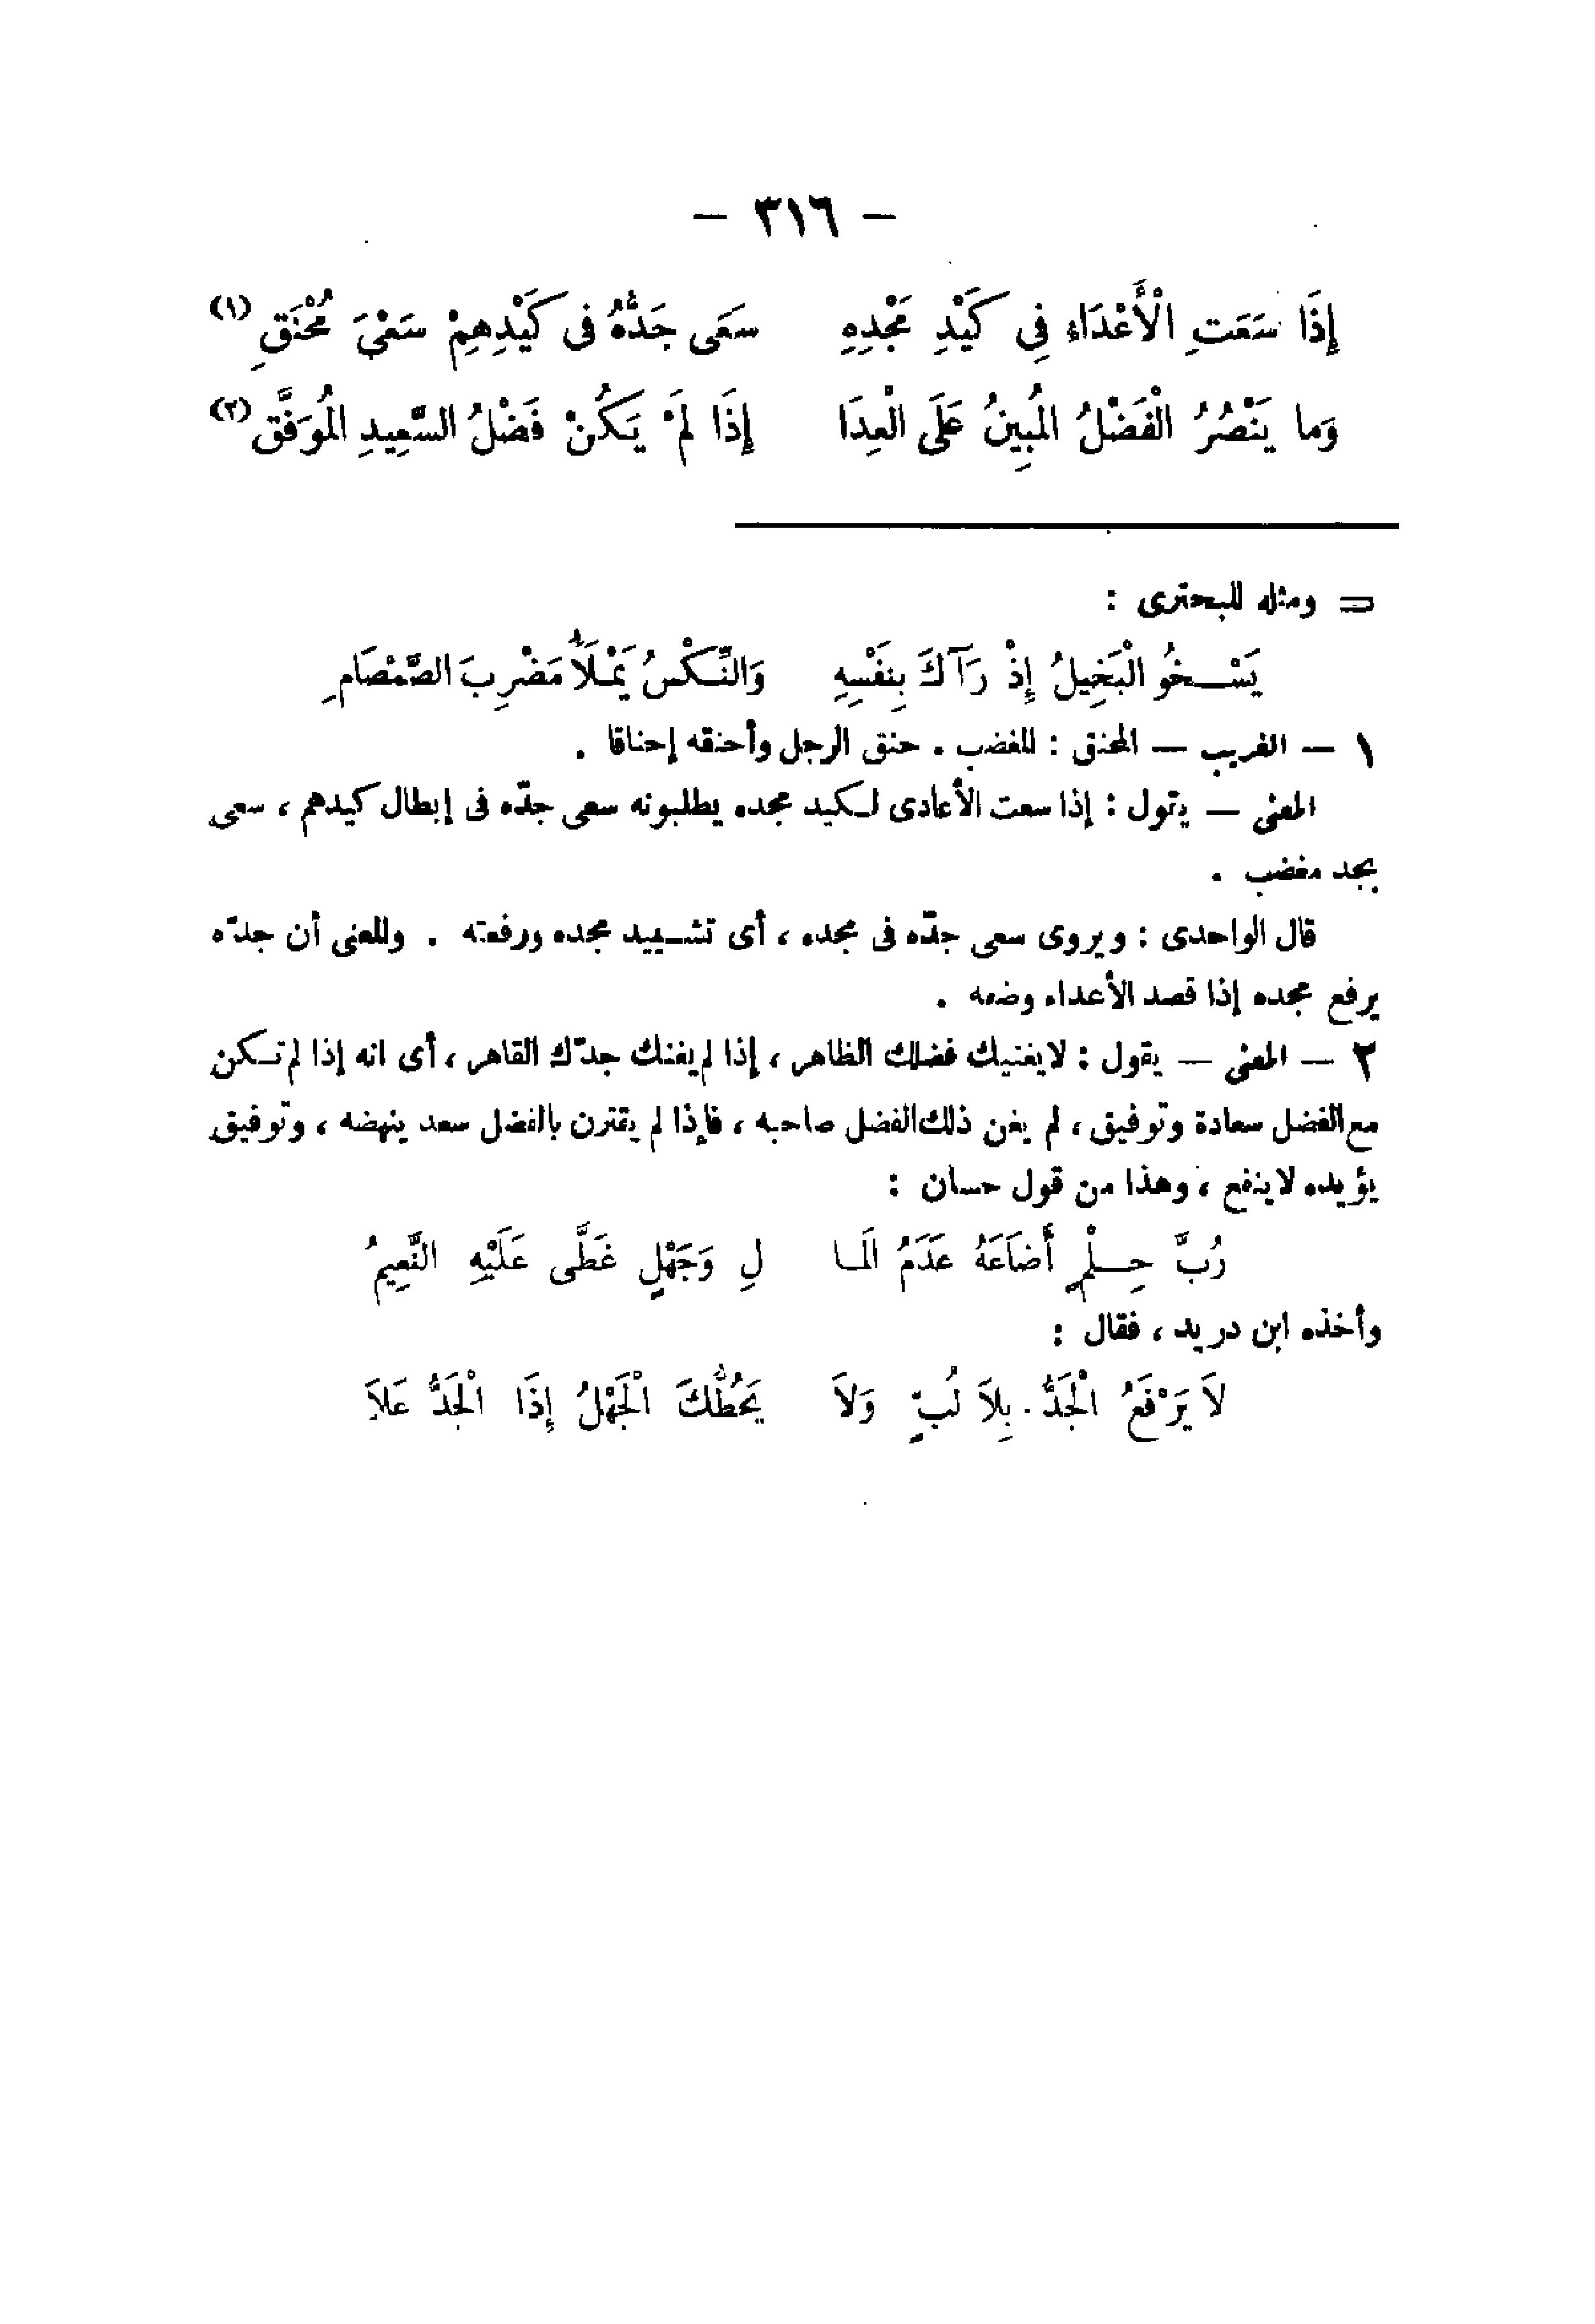 — ٣١٦ —
إِذَا سَعَتِ الْأَعْدَاءِ فِي كَيْدِ مَجْدِهِ سَعَى جَدُّهُ فى كَيْدِهِمْ سَعْىَ مُحْنَقِ (١)
وَما يَنْصُرُ الْفَضْلُ المُبِينُ عَلَى الْعِدَا إِذَا لَمْ يَكُنْ فَضْلُ السَّعِيدِ المُوَفَّقِ (٢)
= ومثله للبحترى :
يَسْخُو الْبَخِيلُ إِذْ رَآكَ بِنَفْسِهِ وَالنِّكْسُ يَمْلَأُ مَضْرِبَ الصَّمْصَامِ
١ — الغريب — المحنق : المغضب . حنق الرجل وأحنقه إحناقا .
المعنى — يقول : إذا سعت الأعادى لكيد مجده يطلبونه سعى جدّه فى إبطال كيدهم ، سعى
بجد مغضب .
قال الواحدى : ويروى سعى جدّه فى مجده ، أى تشييد مجده ورفعته . والمعنى أن جدّه
يرفع مجده إذا قصد الأعداء وضعه .
٢ — المعنى — يقول : لايغنيك فضلك الظاهر ، إذا لم يغنك جدّك القاهر ، أى انه إذا لم تكن
مع الفضل سعادة وتوفيق ، لم يغن ذلك الفضل صاحبه ، فإذا لم يقترن بالفضل سعد ينهضه ، وتوفيق
يؤيده لاينفع ، وهذا من قول حسان :
رُبَّ حِلْمٍ أَضَاعَهُ عَدَمُ المَا لِ وَجَهْلٍ غَطَّى عَلَيْهِ النَّعِيمُ
وأخذه ابن دريد ، فقال :
لاَ يَرْفَعُ الْجَدُّ بِلاَ لُبٍّ وَلاَ يَحُطُّكَ الْجَهْلُ إِذَا الْجَدُّ عَلاَ